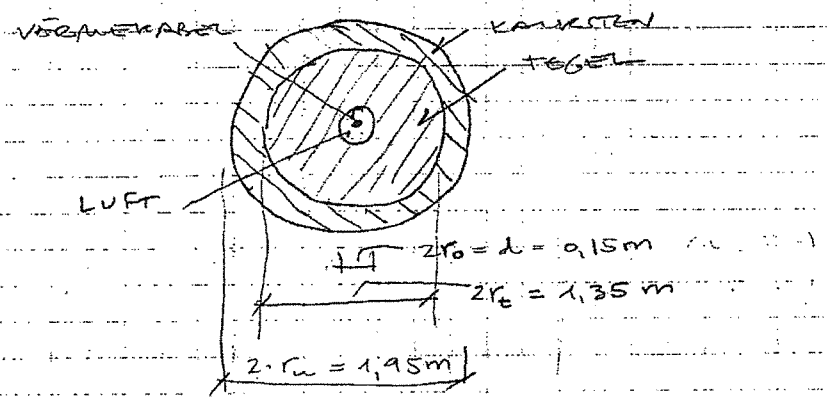 VÄRMEKABEL
KALKSTEN
TEGEL
LUFT
2r₀ = d = 0,15 m
2rₜ = 1,35 m
2·rᵤ = 1,95 m